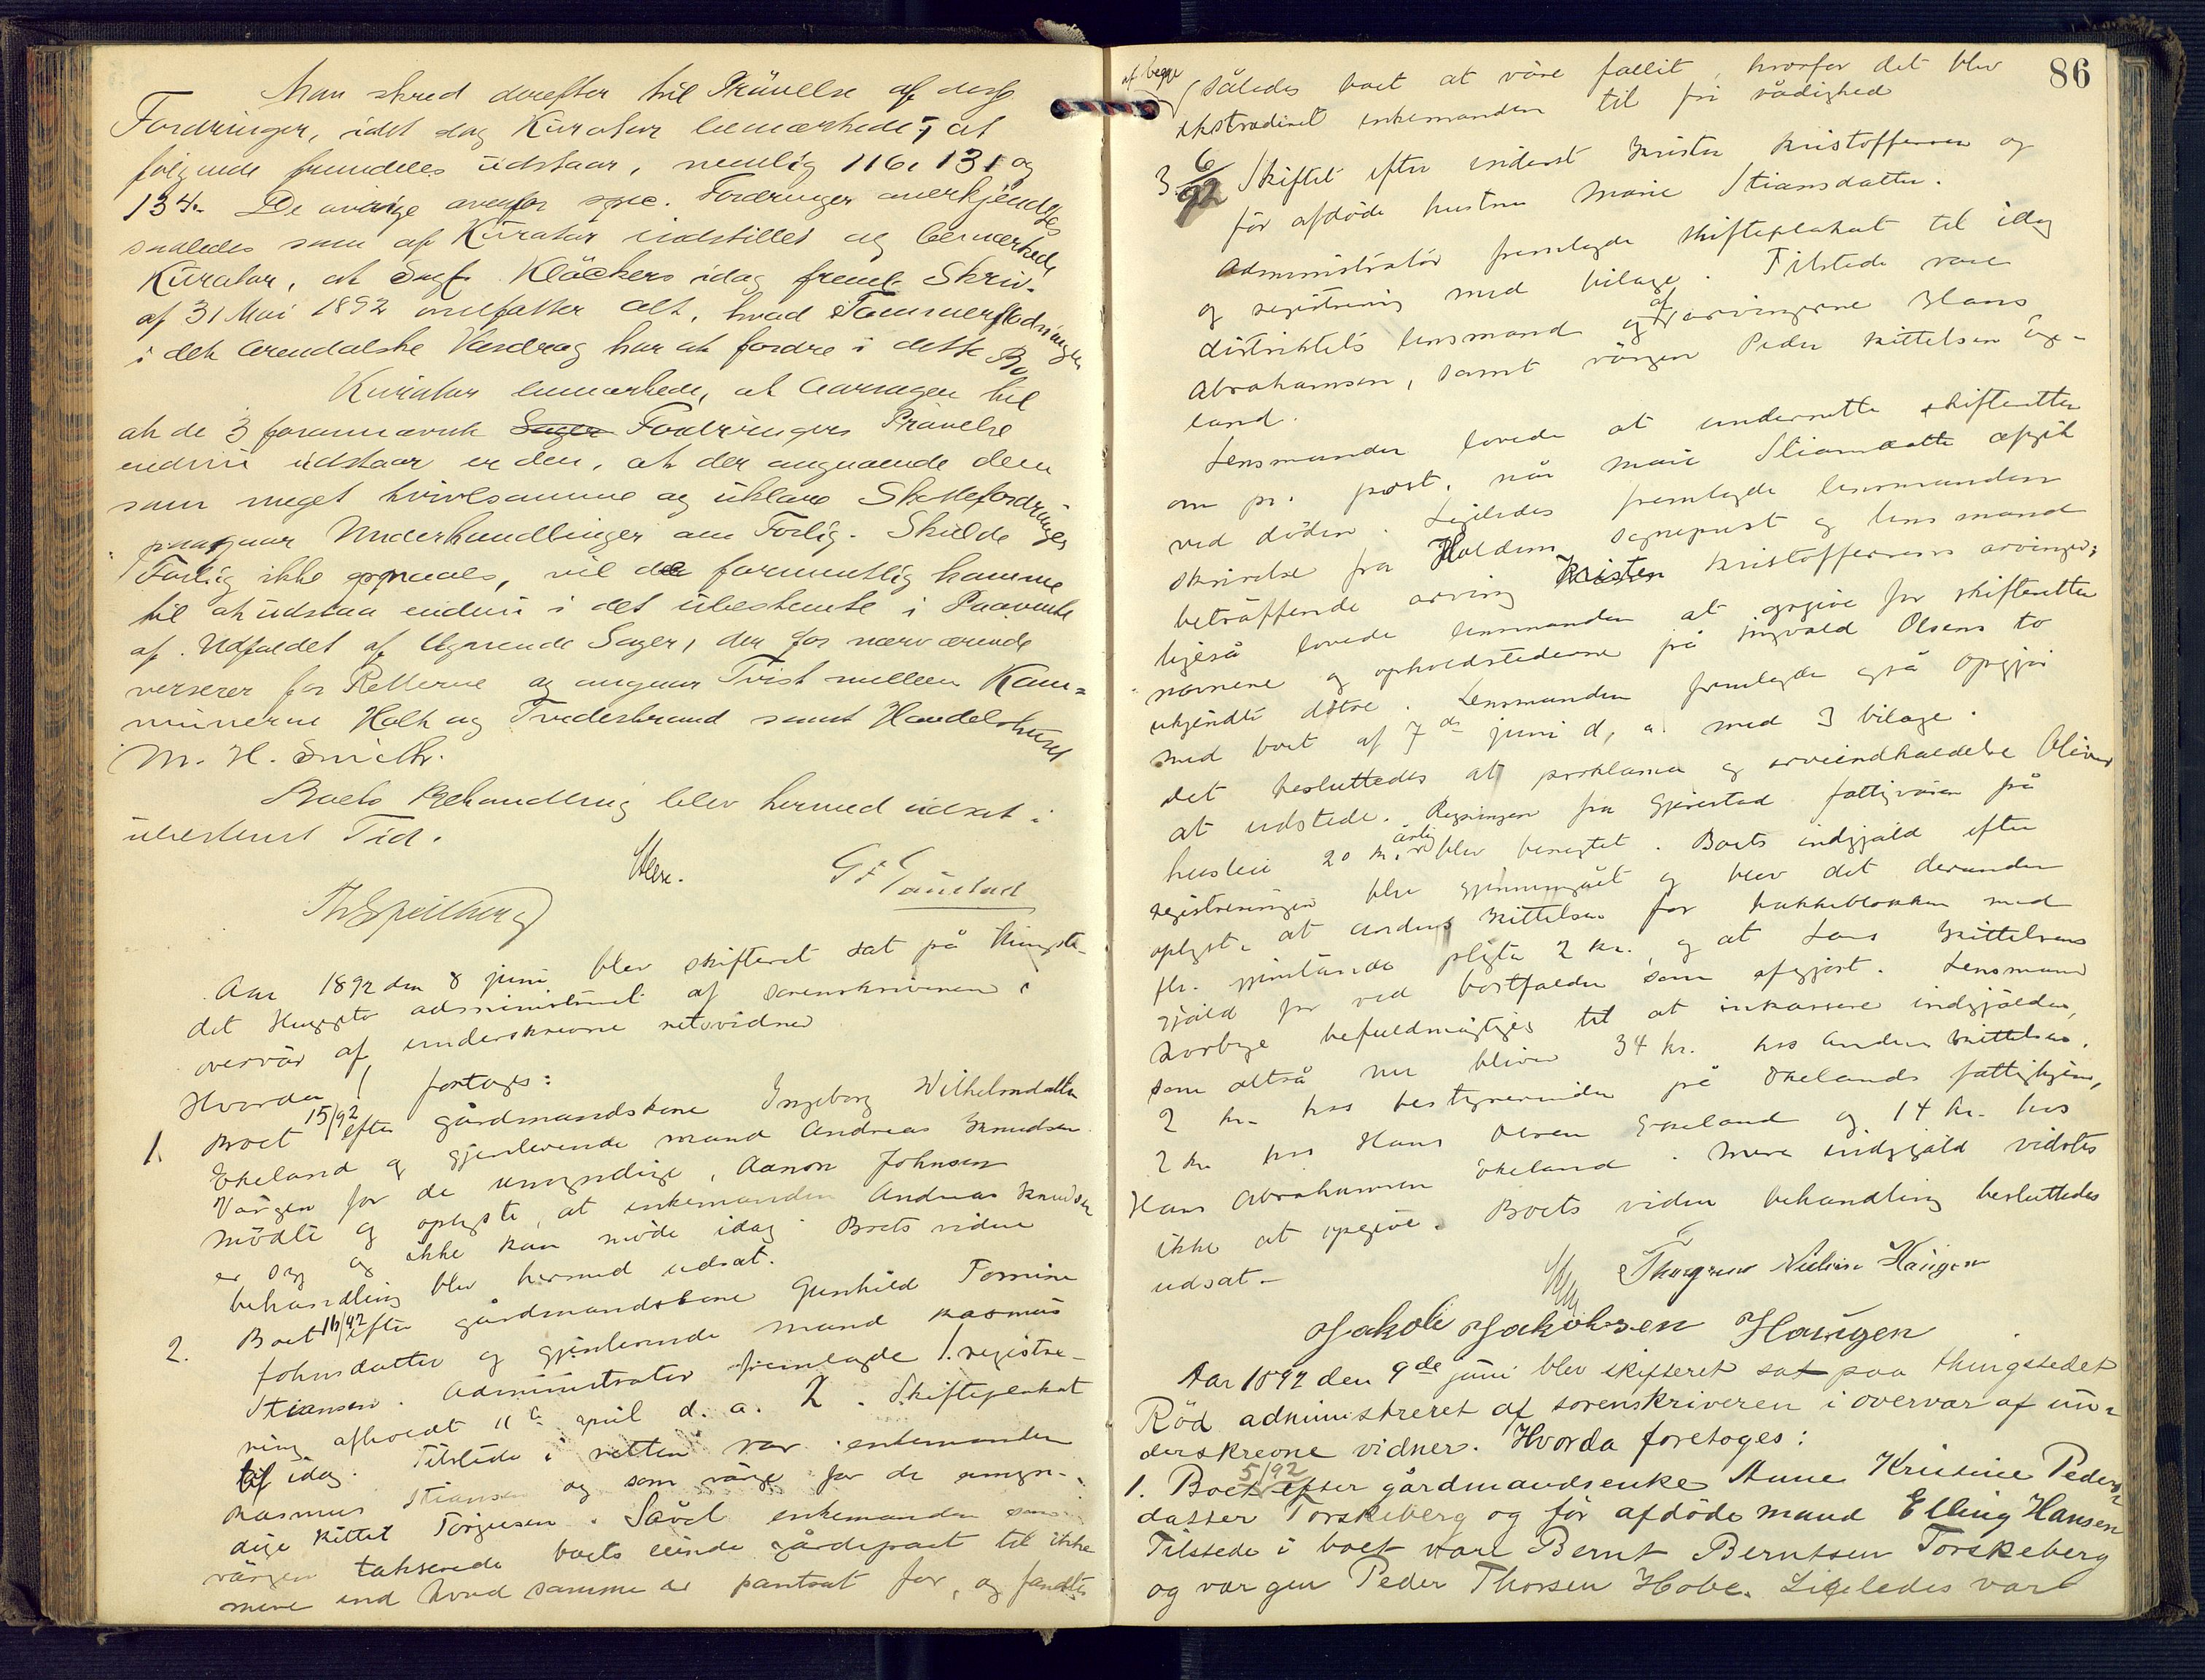 Man skred derefter til Prøvelse af disse
Fordringer, idet dog Kurator bemærkede, at
følgende fremdeles udstaar, nemlig 116, 131 og
134. De øvrige ovenfor spec. Fordringer anerkjendtes
saaledes som af Kurator indstillet og bemærkede
Kurator, at Sagf. Klöckers idag freml. Skriv.
af 31 Mai 1892 omfatter alt, hvad Tømmerflodningen
i det Arendalske Vasdrag har at fordre i dette Bo
Kurator bemærkede, at Aarsagen til
at de 3 forannævnte Fordringers Prøvelse
endnu udstaar er den, at der angaaende dem
som meget tvivlsomme og uklare Skattefordringer
paagaar Underhandlinger om Forlig. Skulde
Forlig ikke opnaaes, vil de formentlig komme
til at udstaa endnu i det ubestemte i Paavente
af Udfaldet af lignende Sager, der for nærværende
verserer for Retterne og angaar Tvist mellem Kom=
munerne Holt og Tvedestrand samt Handelshuset
M. H. Smith.
Boets Behandling blev hermed udsat i
ubestemt Tid.
G F Gaustad
Aar 1892 den 8 juni blev skifteret sat på thingste-
det administreret af sorenskriveren i
overvær af underskrevne retsvidner
Hvorda foretoges:
1. Boet 15/92 efter gårdmandskone Ingeborg Wilhelmsdatter
Ekeland og gjenlevende mand Andreas Knudsen
Værgen for de umyndige, Aanon Johnsen
mødte og oplyste, at enkemanden Andreas Knudsen
er syg og ikke kan møde idag. Boets videre
behandling blev hermed udsat.
2. Boet 16/92 efter gårdmandskone Gunhild Tomine
Johnsdatter og gjenlevende mand Rasmus
Stiansen. Administrator fremlagde 1. registre-
ring afholdt 11te april d. a. 2. Skifteplakat
til idag. Tilstede i retten var enkemanden
Rasmus Stiansen og som værge for de umyn-
dige Kittel Torjusen. Såvel enkemanden som
værgen takserede boets eiende gårdepart til ikke
mere end hvad samme er pantsat for, og fandtes
86
af begge
således boet at være fallit, hvorfor det blev
ekstraderet enkemanden til fri rådighed
3. 6/92 Skiftet efter inderst Kristen Kristoffersen og
før afdøde hustru Marie Stiansdatter.
Administrator fremlagde skifteplakat til idag
og registrering med bilage. Tilstede var
distriktets lensmand og af arvingerne Hans
Abrahamsen, samt værgen Peder Kittelsen Øye-
land.
Lensmanden lovede at underrette skifteretten
om pr. post, når Marie Stiansdatter afgik
ved døden. Ligeledes fremlagde lensmanden
skrivelse fra Holdens sogneprest og lensmand
betræffende arving Kristen Kristoffersens arvinger;
ligeså lovede lensmanden at opgive for skifteretten
navnene og opholdstederne på Ingvald Olsens to
ukjendte døtre. Lensmanden fremlagde også opgjør
med boet af 7de juni d. a. med 3 bilage.
Det besluttedes at proklama og arveindkaldelse bliver
at udstede. Regningen fra Gjerestad fattigvæsen på
husleie 20 kr. årlig blev benegtet. Boets indgjæld efter
registreringen blev gjennemgået og blev det derunder
oplyst, at Anders Kittelsen for hakkeblokken med
fl. gjenstande pligter 2 kr. og at Lars Kittelsens
gjæld for ved bortfalder som afgjort. Lensmand
Lorbye befuldmægtiges til at inkassere indgjælden,
som altså nu bliver 34 kr. hos Anders Kittelsen,
2 kr. hos bestyrerinden på Ekelands fattighjem,
2 kr. hos Hans Olsen Ekeland og 14 kr. hos
Hans Abrahamsen Ekeland. Mere indgjæld vidstes
ikke at opgive. Boets videre behandling besluttedes
udsat.
Thorgrim Nielsen Haugen
Jakob Jakobsen Haugen
Aar 1892 den 9de juni blev skifteret sat paa thingstedet
Rød administreret af sorenskriveren i overvær af un=
derskrevne vidner. Hvorda foretoges:
1. Boet 5/92 efter gårdmandsenke Anne Kristine Peders=
datter Torskeberg og før afdøde mand Elling Hansen
Tilstede i boet var Bernt Berntsen Torskeberg
og værgen Peder Thorsen Hobe. Ligeledes var